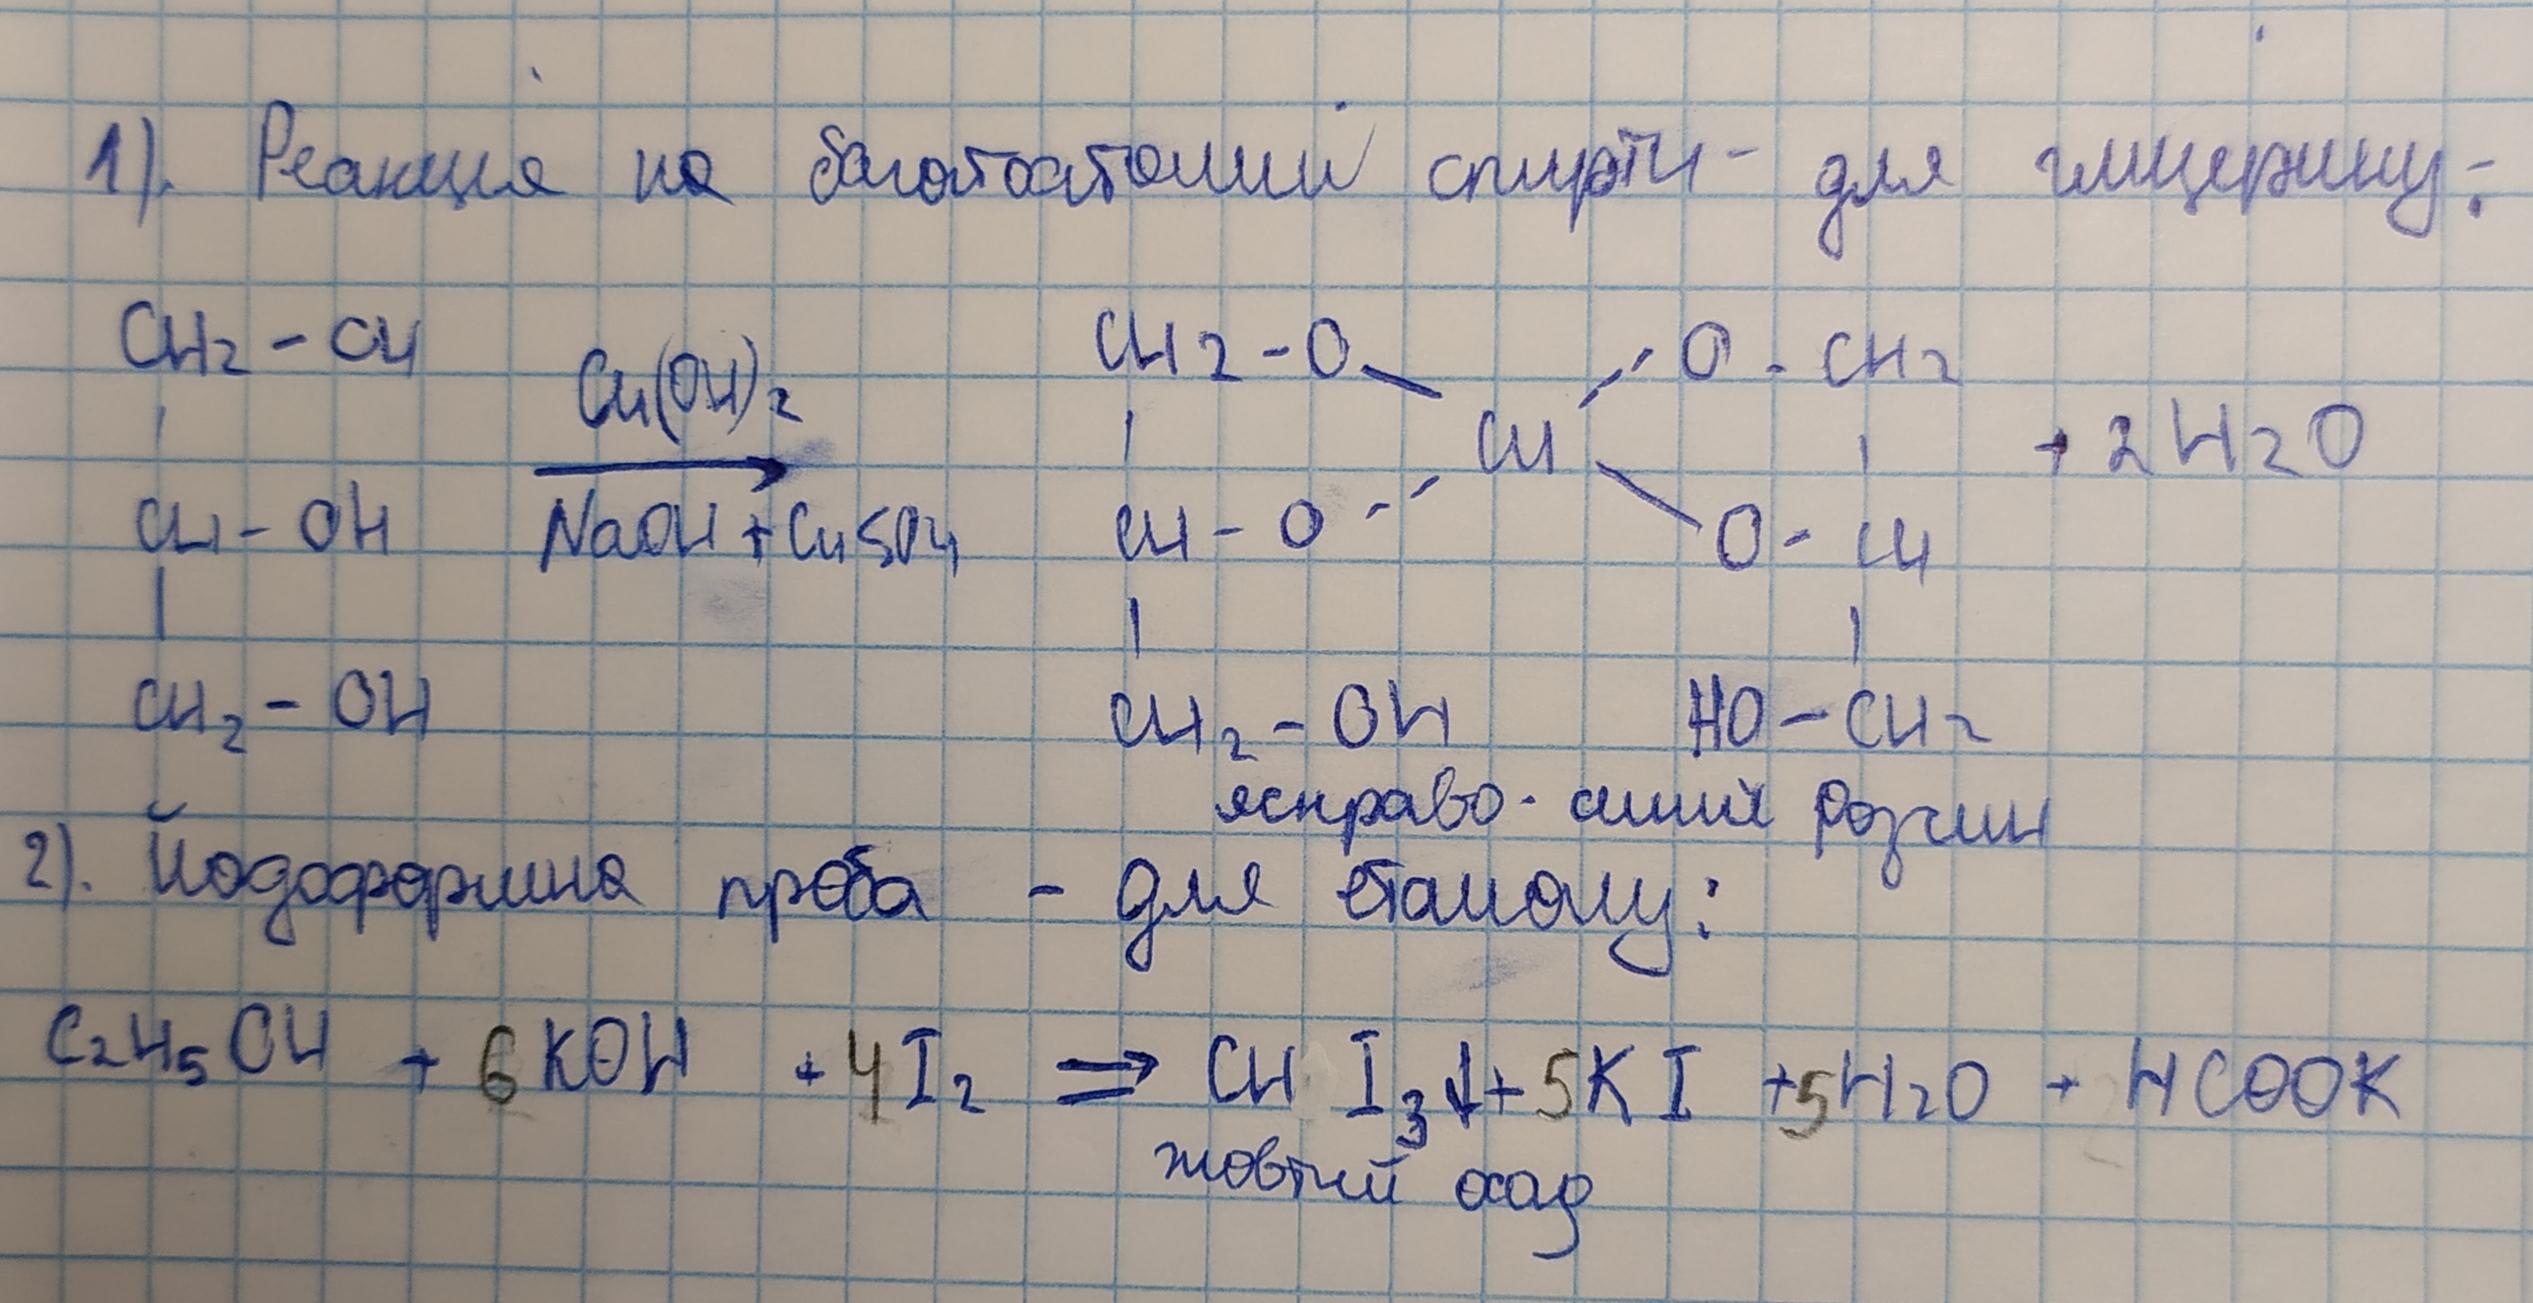 1). Реакція на багатоатомні спирти - для гліцерину:
CH2 - OH CH2 - O O - CH2
Cu(OH)2 Cu + 2H2O
CH - OH NaOH + CuSO4 CH - O O - CH
CH2 - OH CH2 - OH HO - CH2
яскраво-синій розчин
2). Йодоформна проба - для етанолу:
C2H5OH + 6KOH + 4I2 ⇒ CHI3↓ + 5KI + 5H2O + HCOOK
жовтий осад